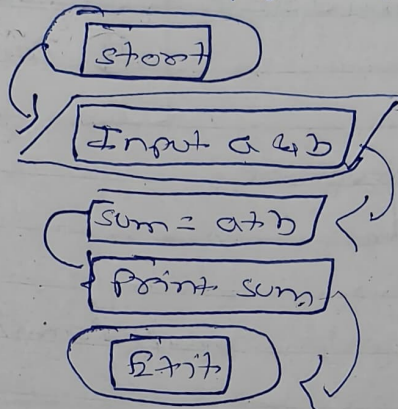 Start
Input a & b
sum = a+b
Print sum
Exit